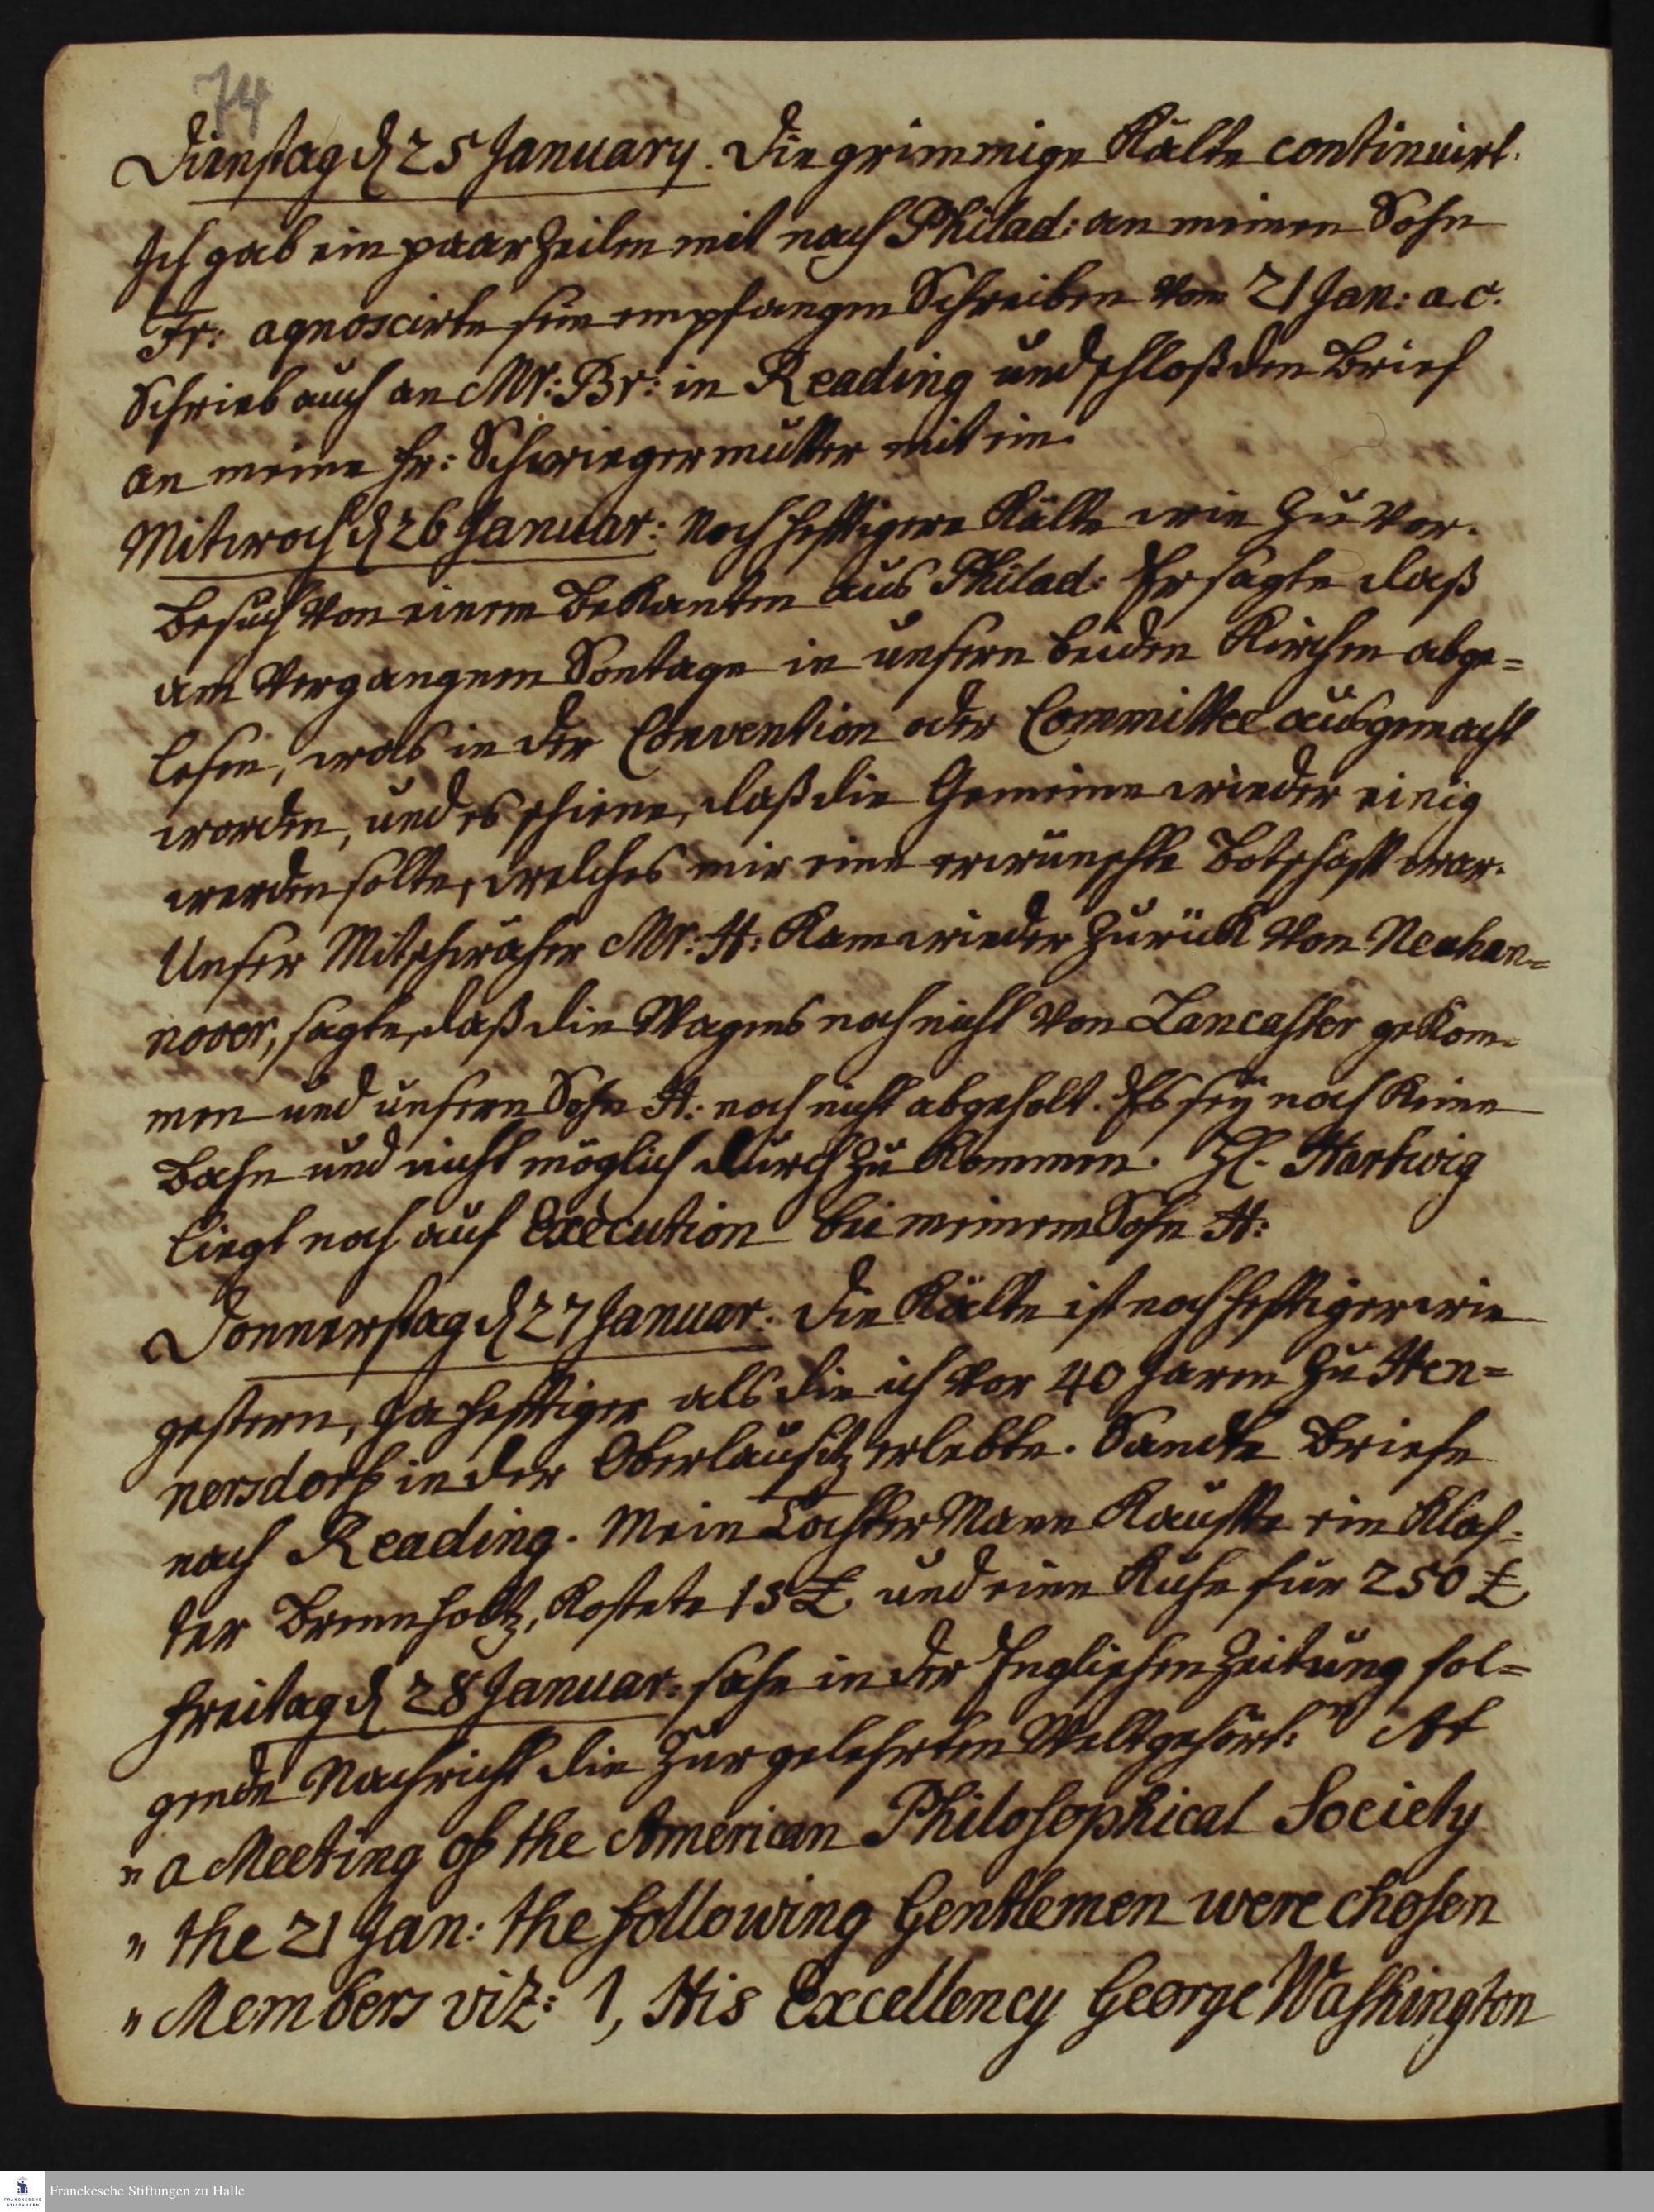 74
Dienstag d 25 January. Die grimmige Kälte continuirt.
Ich gab ein paar Zeilen mit nach Philad: an meinen Sohn
Fr: agnoscirte sein empfangen Schreiben vom 21 Jan: a.c.
Schrieb auch an Mr: Br: in Reading und schloß den Brief
an meine Fr: Schwiegermutter mit ein.
Mitwoch d 26 Januar: Noch hefftigere Kälte wie zu vor.
Besuch von einem Bekanten aus Philad: Er sagte daß
am vergangnen Sontage in unsern beiden Kirchen abge=
lesen, was in der Convention oder Committee ausgemacht
worden, und es schiene, daß die Gemeine wieder einig
werden solte, welches mir eine erwünschte Botschafft war.
Unser Mitschwäher Mr: H: kam wieder zurück von Neuhan=
nover, sagte, daß die Wagens noch nicht von Lancaster gekom-
men und unsern Sohn H: noch nicht abgeholt. Es sey noch keine
Bahn und nicht möglich durch zu kommen. H. Hartwig
liegt noch auf Execution bei meinem Sohn H:
Donnerstag d 27 Januar. Die Kälte ist noch hefftiger wie
gestern, ja hefftiger als die ich vor 40 Jaren zu Hen=
nersdorf in der Oberlausitz erlebte. Sandte Briefe
nach Reading. Mein TochterMann kauffte ein Klaf=
ter Brennholtz, kostete 15 £ und eine Kuhe für 250 £
Freitag d 28 Januar. sahe in der Englischen Zeitung fol=
gende Nachricht die zur gelehrten Welt gehört: " At
" a Meeting of the American Philosophical Society
" the 21 Jan: the following Gentlemen were chosen
" Members viz: 1, His Excellency George Washington
Franckesche Stiftungen zu Halle
FRANCKESCHE
STIFTUNGEN